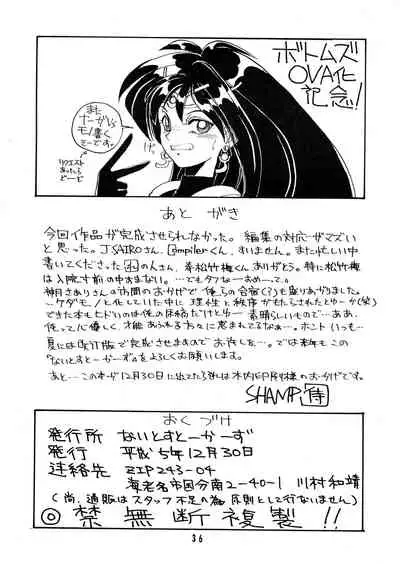 ボトムズ
OVA化
記念!
また
モノ書く
ミーです。
リクエスト
あったら
どーぞ
げっ
あとがき
今回作品が完成させられなかった。編集の対応がマズい
と思った。J.SAIROさん、Compilerくん、すいません。また忙しい中
書いてくださった のんさん、奉松竹梅くんありがとう。特に松竹梅
は入院寸前の中まのい。…でもタフなーおめー…て。
ーケダモノと化していた中に理性と秩序がもたらされたとゆーか(笑)
できた本もヒドいのは俺の原稿だけとゆー素晴らしいもので…ああ、
俺って心優しく才能あふれる方々に恵まれてるなぁ…。ホントいつも…
夏には改訂版で完成させますのでお許しを…。では来年もこの
"ないとすとーかーず"をよろしくお願いします。
あと…この本が12月30日に出てたら 木内印刷様のおかげです。
SHAMP 侍
おくづけ
発行所 ないとすとーかーず
発行 平成5年12月30日
連絡先 ZIP243-04
海老名市国分南2-40-1 川村和靖
(尚、通販はスタッフ不足の為、原則として行ないません)
◎禁無断複製!!
36